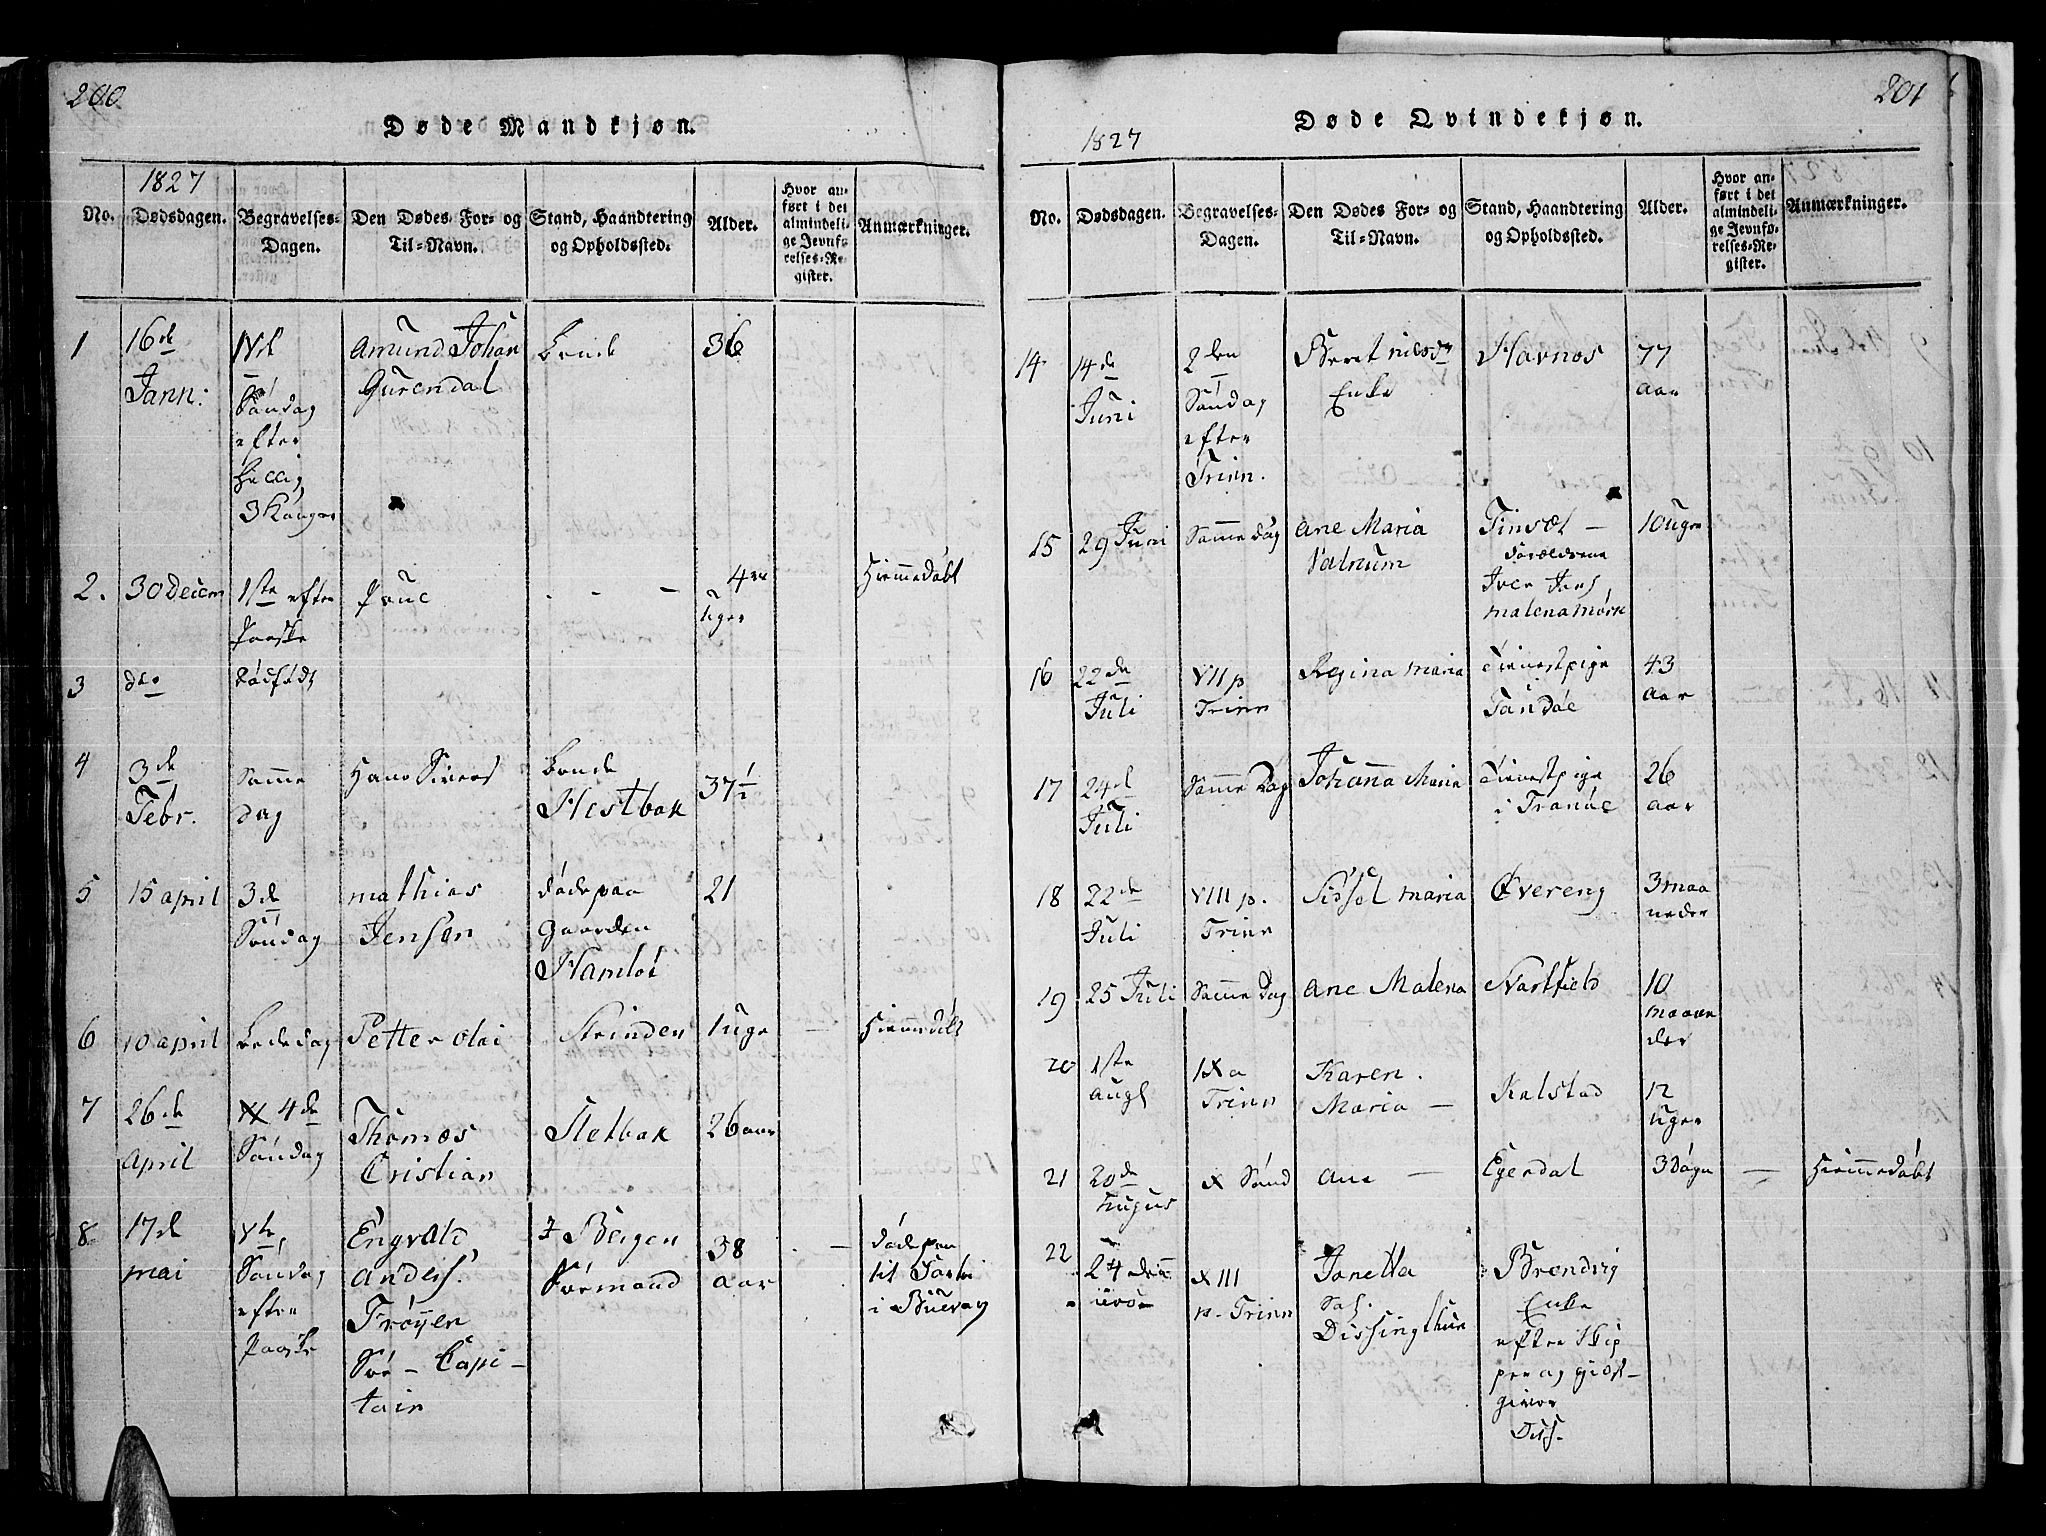 200
Døde Mandkjøn.
1827
No.
Dødsdagen.
Begravelses-
Dagen.
Den Dødes For- og
Til-Navn.
Stand, Haandtering
og Opholdssted.
Alder.
Hvor an-
ført i det
almindeli-
ge Jevnfø-
relses-Re-
gister.
Anmærkninger.
1
16de
Jann:
IVde
Søndag
efter
Hellig
3 Konger
Amund Johan
Gurendal
Bonde
36
2.
30 Decem
1ste efter
Paaske
- - -
4re
Uger
Hiemmedøbt
3
dto
Dødfødt
4
3de
Febr.
Samme
Dag
Hans Sivers
Bonde
Hestbak
37½
5
15 april
3de
Søndag
Mathias
Jensen
døde paa
Gaarden
Hamlot
21
6
10 april
Bededag
Petter Olai
Strinden
1 uge
-
Hiemmedøbt
7
26de
April
4de
Søndag
Thomas
Cristian
Sletbak
26 aar
8
17de
mai
Vte
Søndag
efter
Paaske
Engvald
Anders.
Frøyen
Søe-Capi-
tain
I Bergen
Søemand
38
aar
-
døde paa
til
i
201
Døde Qvindekjøn.
1827
No.
Dødsdagen.
Begravelses-
Dagen.
Den Dødes For- og
Til-Navn.
Stand, Haandtering
og Opholdssted.
Alder.
Hvor an-
ført i det
almindeli-
ge Jevnfø-
relses-Re-
gister.
Anmærkninger.
14
14de
Juni
2den
Søndag
efter
Trinn.
Beret Nilsd.
Enke
Havnæs
77
aar
15
29 Juni
Samme dag
Ane Maria
Valnum
Finsæt -
Forældrene
Iver Jens
Malena Mørk
10 Uger
16
22de
Juli
VII p
Trinn
Regina Maria
Tienestpige
43
aar
17
24de
Juli
Samme Dag
Johanna Maria
Tienestpige
i Tranøe
26
aar
18
22de
Juli
VIII p.
Trinn
Sissel Maria
Øvereng
3 maa
neder
19
25 Juli
Samme Dag
Ane Malena
Nartfield
10
maane
der
20
1ste
Augl
IX a
Trinn
Karen
Maria -
Kalstad
12
Uger
21
20de
Augus
X Sønd
Ane -
Egerdal
3 Døgn
-
Hiemmedøbt
22
24de
XIII
p. Trinn
Janetta
Sal.
Dissingthun
Brendvig
Enke
efter Skip
per og giæst-
giver
Diss.